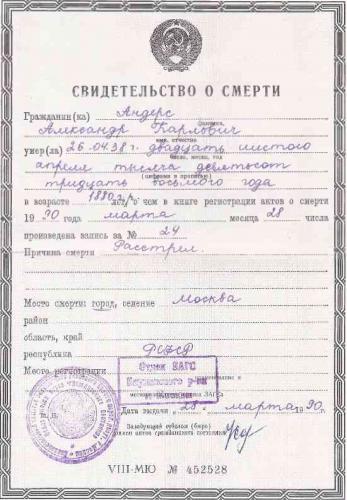 СВИДЕТЕЛЬСТВО О СМЕРТИ
Гражданин(ка) Андерс
фамилия,
Александр Карлович
имя, отчество
умер(ла) 26.04.38 г. двадцать шестого
число, месяц, год
апреля тысяча девятьсот
(цифрами и прописью)
тридцать восьмого года
в возрасте 1880 г/р лет, о чем в книге регистрации актов о смерти
1990 года марта месяца 28 числа
произведена запись за № 24
Причина смерти Расстрел.
Место смерти: город, селение Москва
район
область, край
республика РСФСР
Место регистрации
Отдел ЗАГС
р-на
ЗАГСа
Дата выдачи „28" марта 1990г.
М. П.
Заведующий отделом (бюро)
записи актов гражданского состояния
VIII-МЮ № 452528